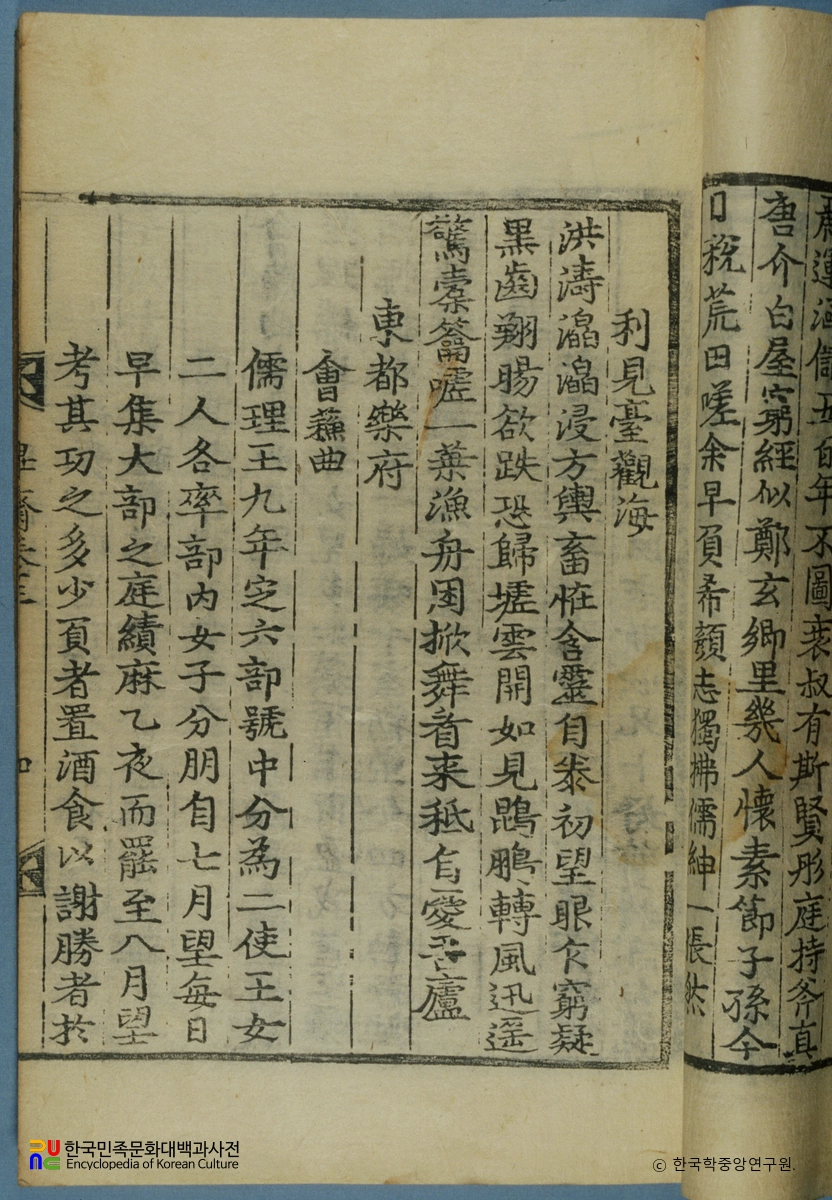 運河
年不圖 叔有斯賢彤庭持斧真
唐介白屋窮經似鄭玄鄉里幾人懷素節子孫今
日稅荒田嗟余早負希顏志獨拂儒紳一悵然
利見臺觀海
洪濤滔滔浸方輿畜怪含靈自泰初望眼乍窮疑
黑齒翔腸欲跌恐歸墟雲開如見鵾鵬轉風迅遥
驚槖籥嘘一葉漁舟困掀舞看来秪自愛吾廬
東都樂府
會蘇曲
儒理王九年定六部號中分為二使王女
二人各率部內女子分朋自七月望每日
早集大部之庭績麻乙夜而罷至八月望
考其功之多少負者置酒食以謝勝者於
齋卷三
한국민족문화대백과사전
Encyclopedia of Korean Culture
ⓒ 한국학중앙연구원.